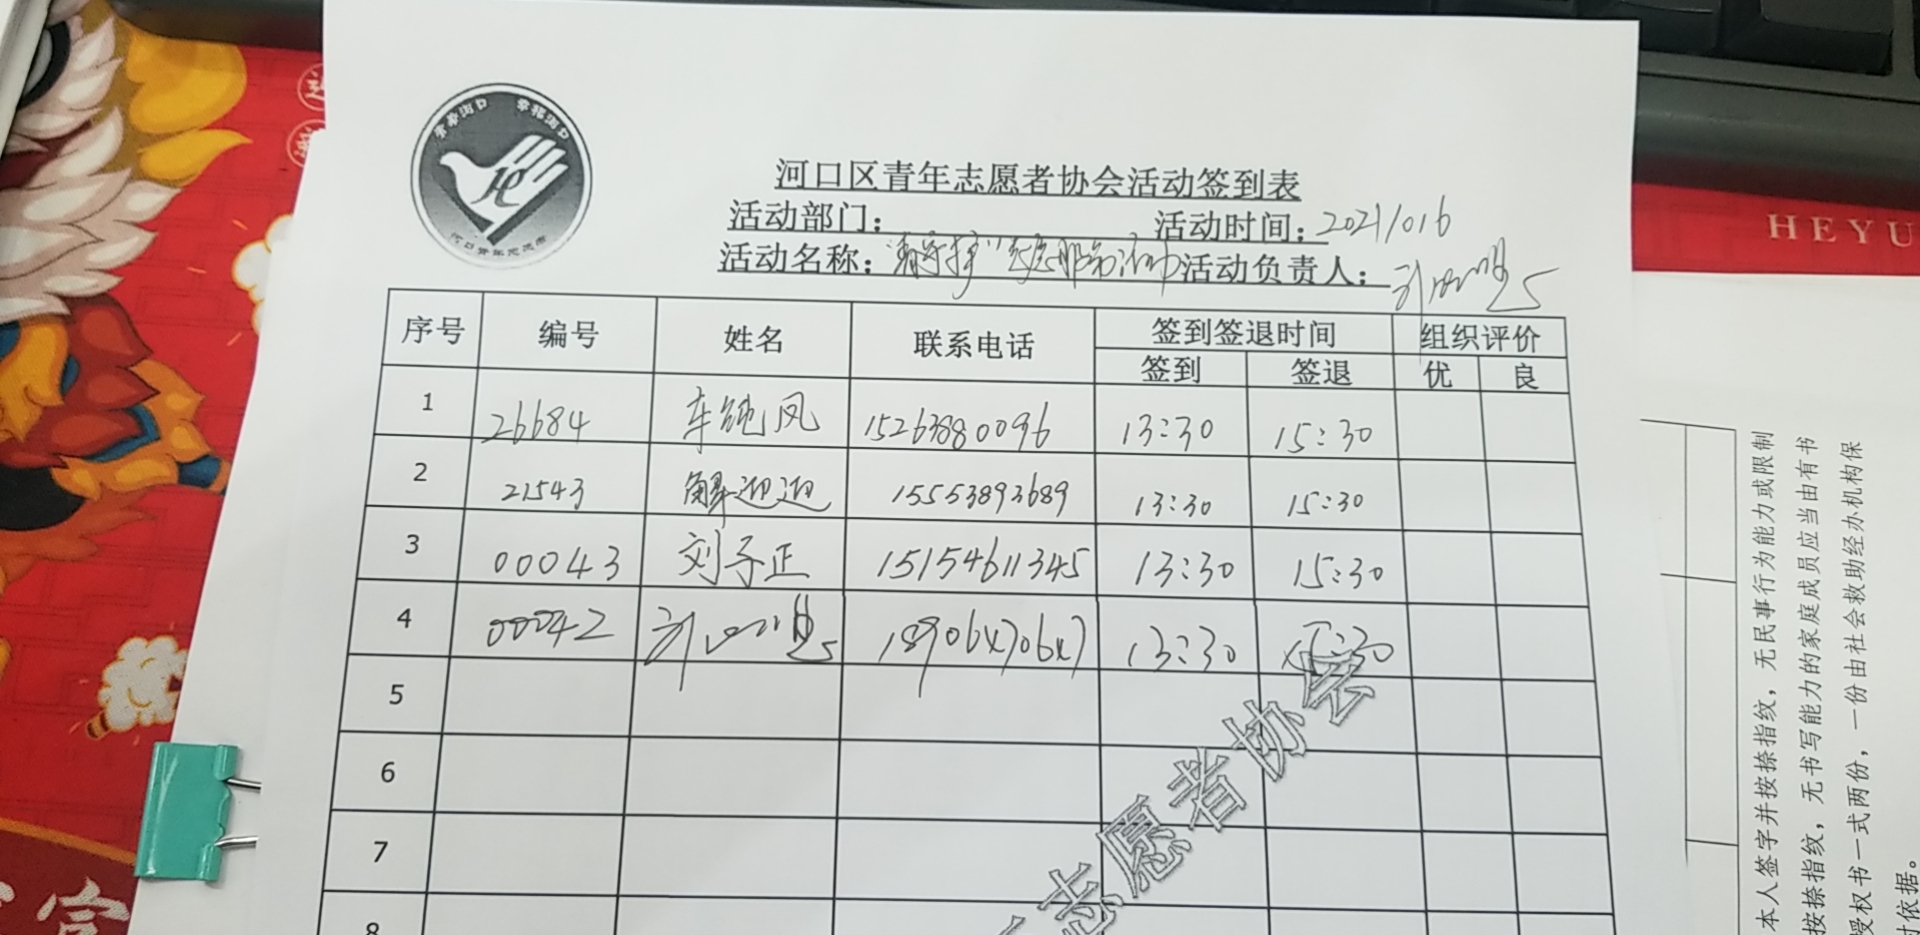 河口区青年志愿者协会活动签到表
活动部门： 活动时间：20211016
活动名称： 活动负责人：
序号 编号 姓名 联系电话 签到签退时间 组织评价
签到 签退 优 良
1 26684 车纯风 15263880096 13:30 15:30
2 21543 解迎迎 15553893689 13:30 15:30
3 00043 刘子正 15154611345 13:30 15:30
4 00042 13:30 15:30
5
6
7
8
志愿者协会
HEYU
本人签字并按捺指纹，无民事行为能力或限制
按捺指纹，无书写能力的家庭成员应当由有书
授权书一式两份，一份由社会救助经办机构保
寸依据。